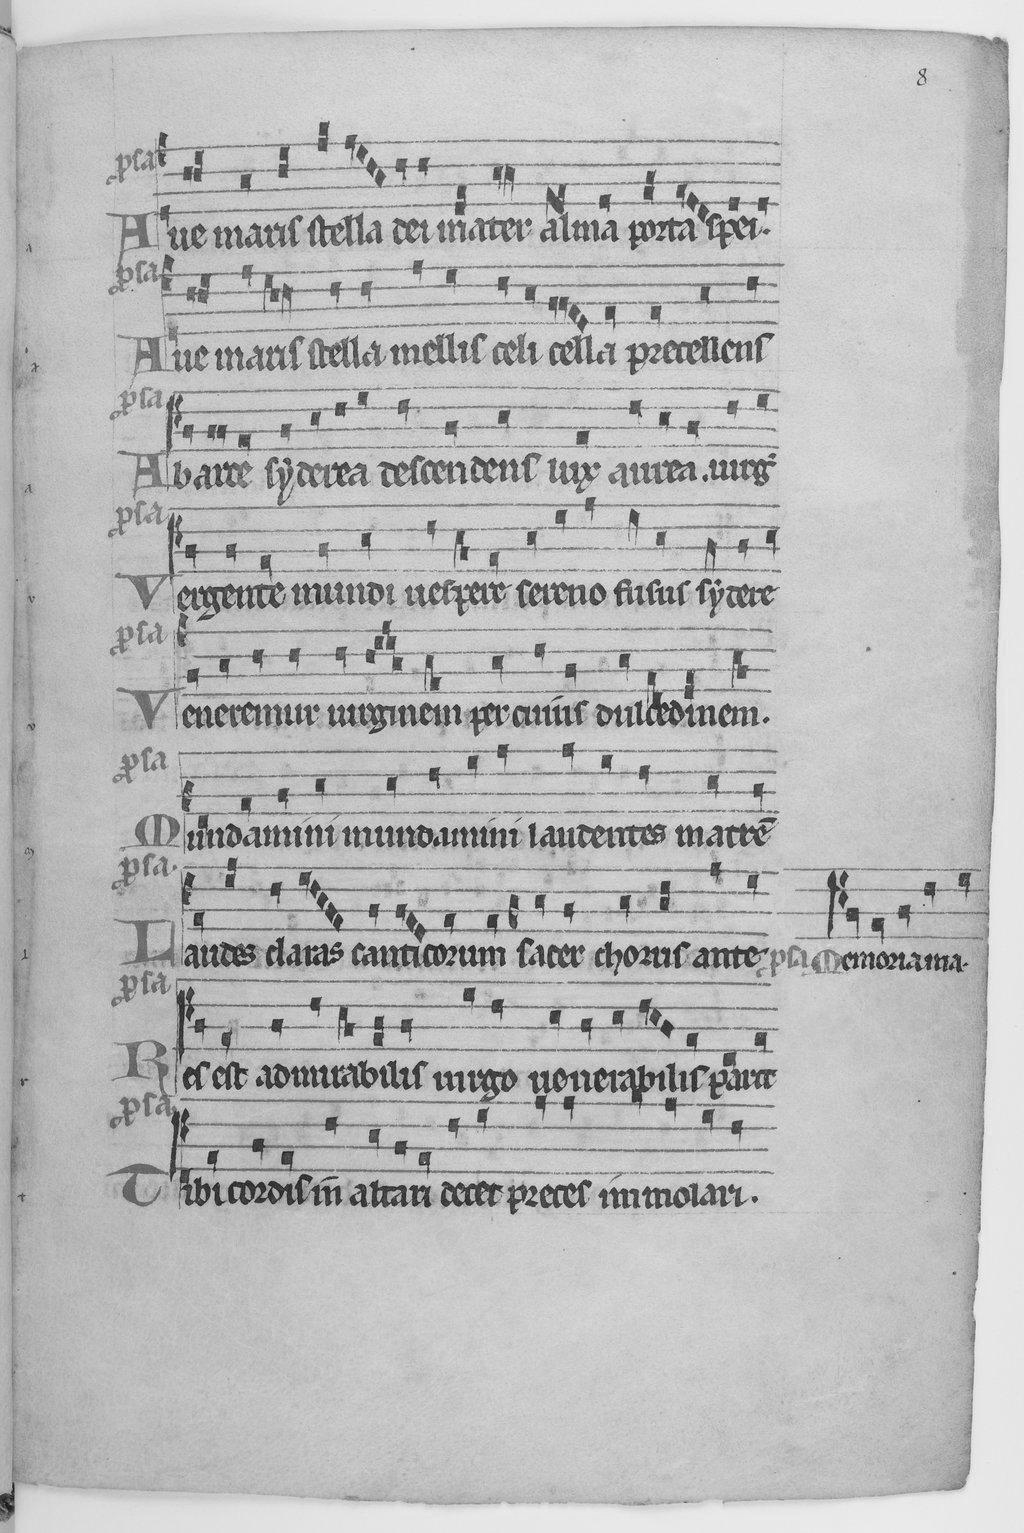 8
p̱sa
Aue maris stella dei mater alma porta spei.
p̱sa
Aue maris stella mellis celi cella precellens
p̱sa
Ab arce syderea descendens lux aurea .uirg̃
p̱sa
Vergente mundi uespere sereno fusus sydere
p̱sa
Veneremur uirginem per cuius dulcedinem.
p̱sa
Mundamini mundamini laudentes matrē
p̱sa.
Laudes claras canticorum sacer chorus ante p̱sa Memoriam a.
p̱sa
Res est admirabilis uirgo uenerabilis parit
p̱sa
Tibi cordis in altari decet preces immolari.